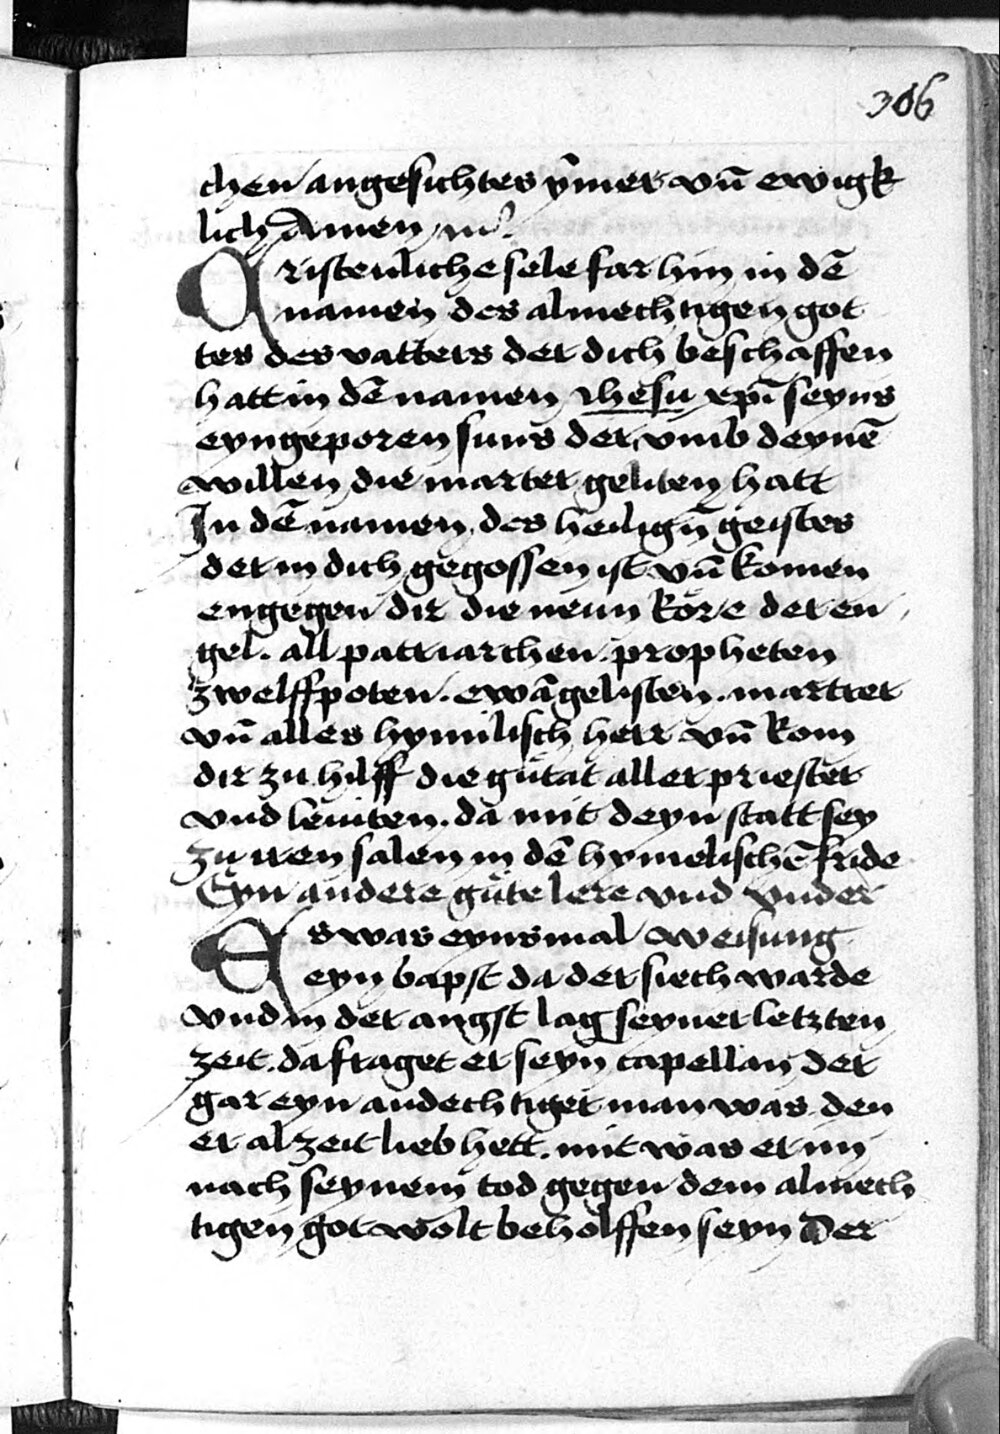 306
chen angesichtes ym̄er vn̄ ewigk
lich Amen
Cristenliche sele far hin in dē
namen des almechtigen got
tes des vatters der dich beschaffen
hatt in dē namen Jhesu xp̄i seyns
eyngeporen suns der vmb deynē
willen die marter geliten hatt
In dē namen des heilign̄ geistes
der in dich gegossen ist vn̄ komen
engegen dir die neun köre der en
gel. all patriarchen. propheten
zwelffpoten. ewāgelisten. martrer
vn̄ alles hymlisch herr vn̄ kom
dir zu hilff die gůtat aller priester
vnd leuiten. da mit deyn statt sey
zu iren salen in dē hymelischē fride
Eyn andere gůte lere vnd vnder
Es was eynsmal weisung
eyn bapst da der siech warde
vnd in der angst lag seyner letzten
zeit. da fraget er seyn capellan der
gar eyn andechtiger man was den
er alzeit lieb hett. mit was er im
nach seynem tod gegen dem almech
tigen got wolt beholffen seyn Der